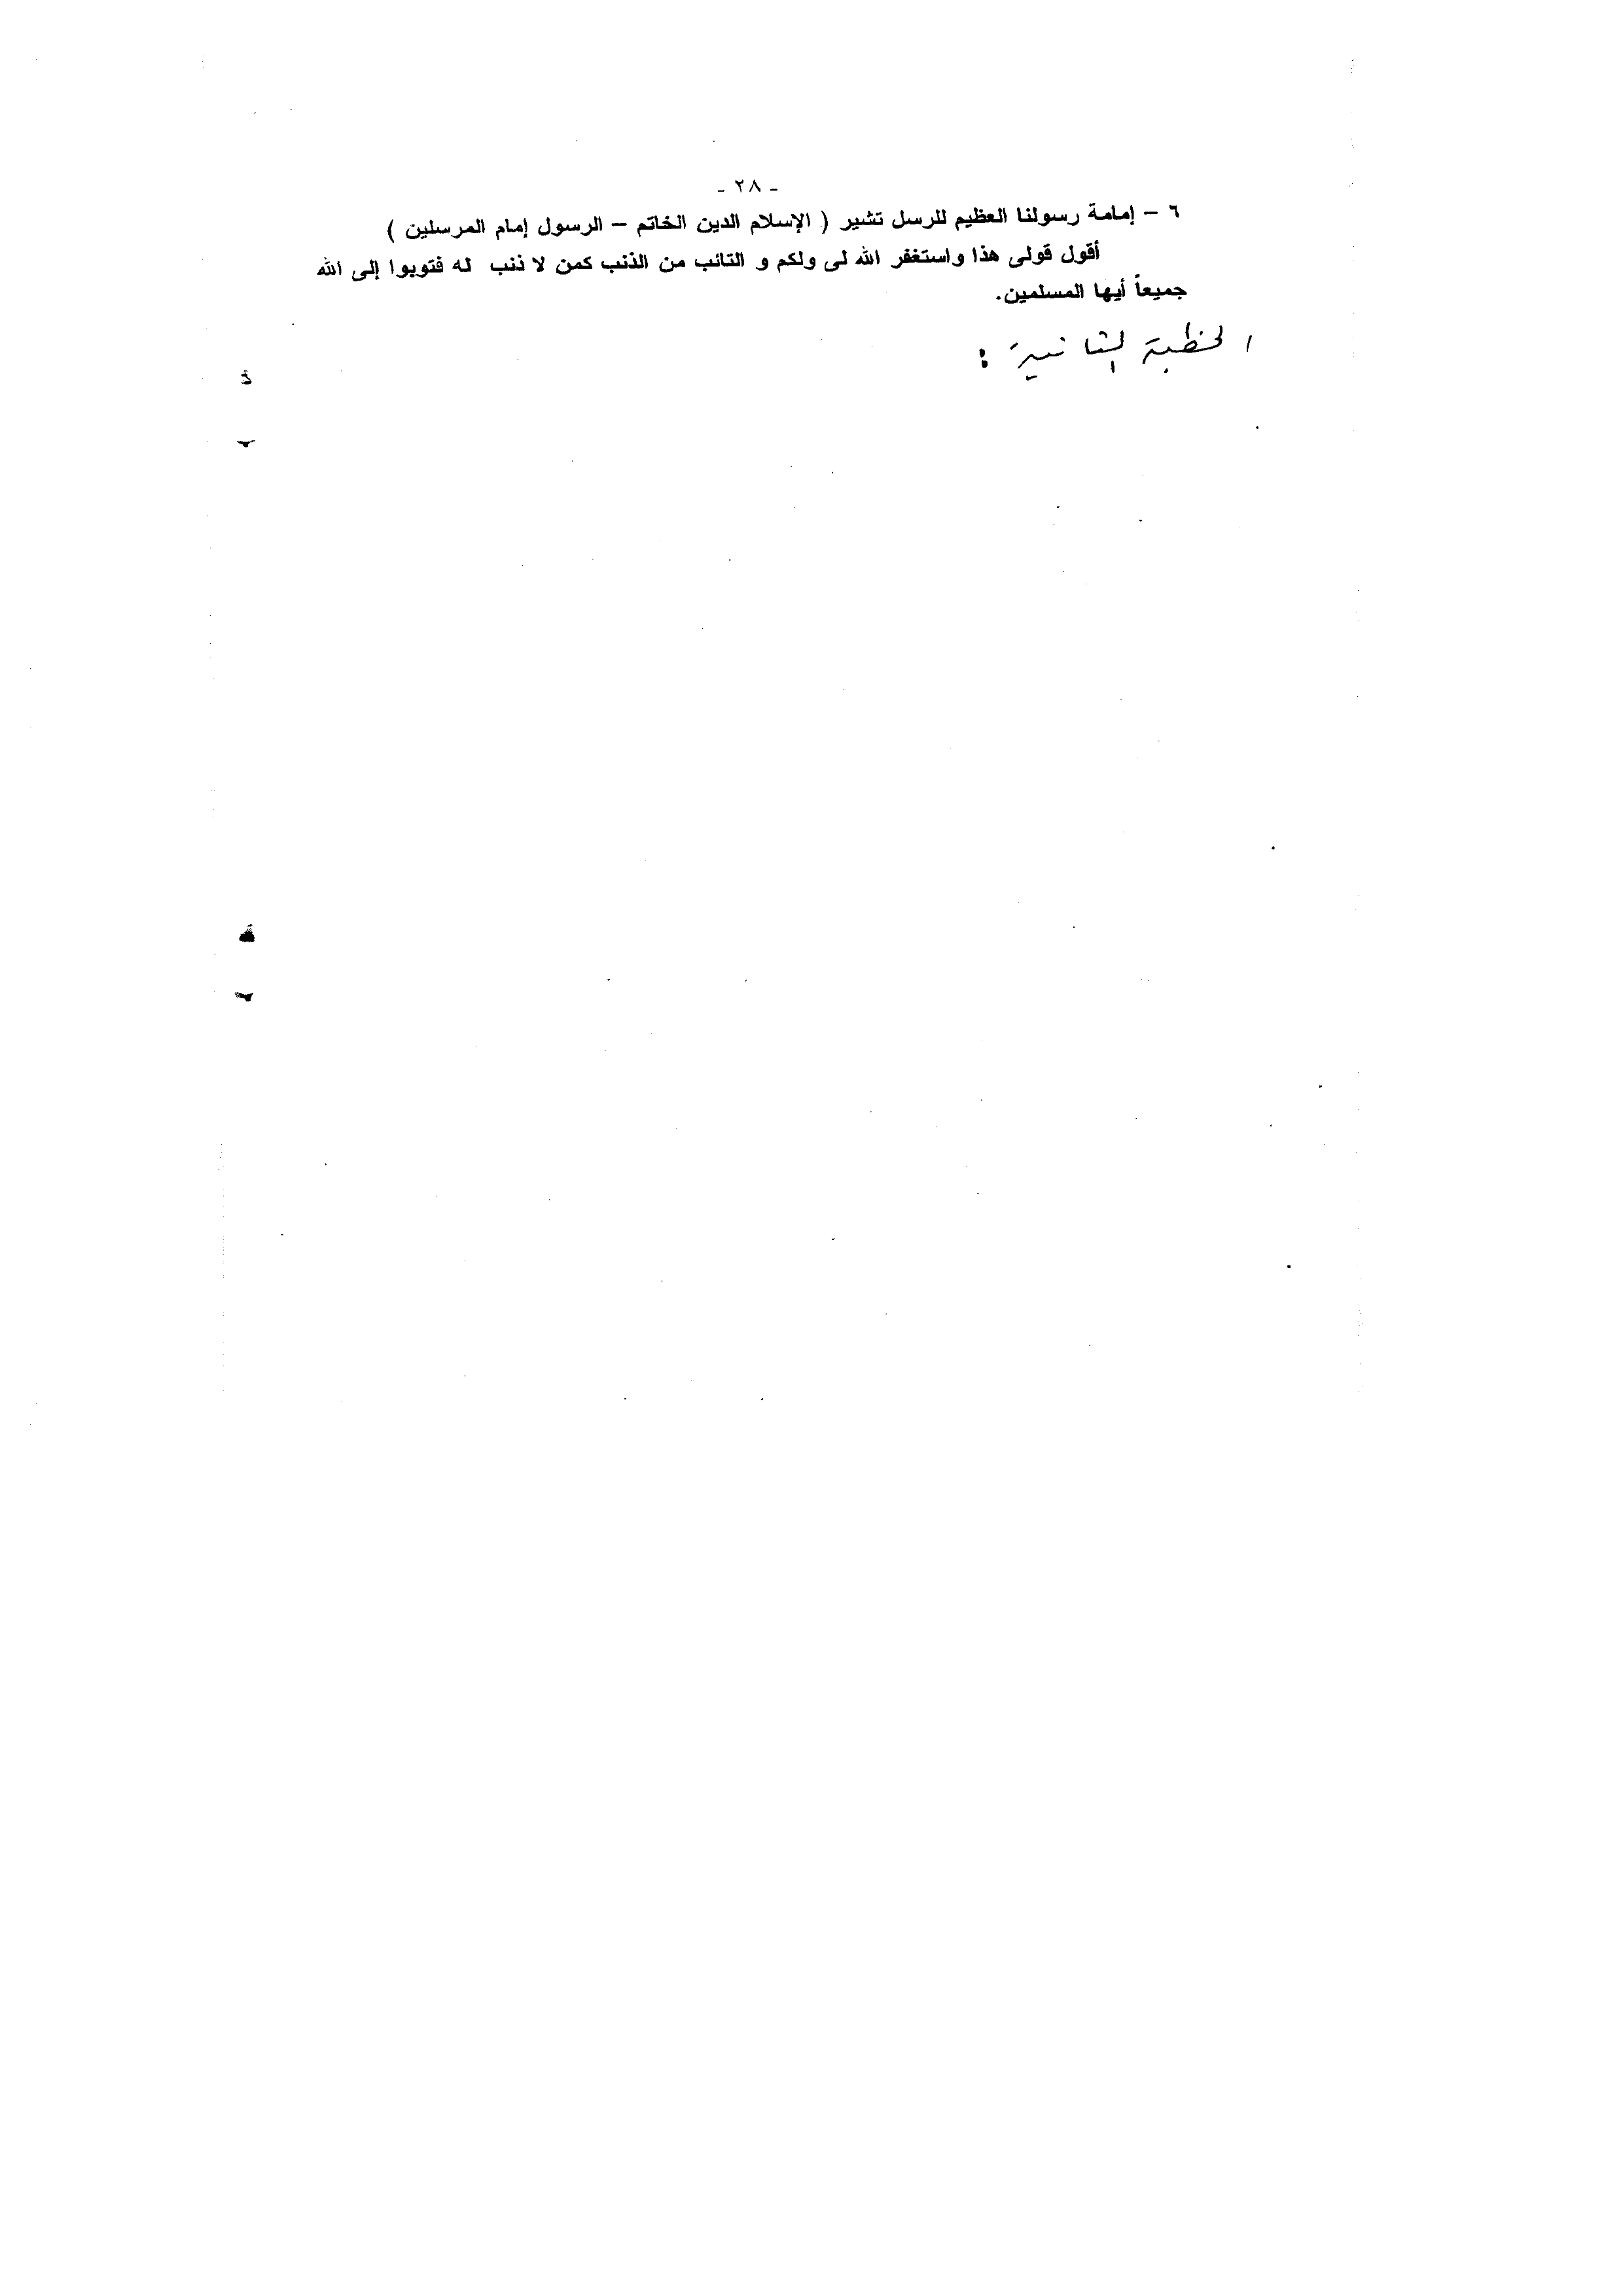 - ٢٨ -
٦ – إمامة رسولنا العظيم للرسل تشير ( الإسلام الدين الخاتم – الرسول إمام المرسلين )
أقول قولى هذا واستغفر الله لى ولكم و التائب من الذنب كمن لا ذنب له فتوبوا إلى الله
جميعاً أيها المسلمين.
الخطبة الثانية :